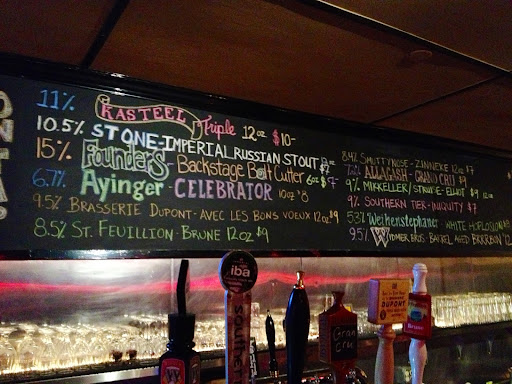 ON TAP
11% KASTEEL Triple 12oz $10-
10.5% STONE-IMPERIAL RUSSIAN STOUT $7
15% Founders - Backstage Bolt Cutter 6oz $9
6.7% Ayinger - CELEBRATOR 10oz $8
9.5% BRASSERIE DUPONT - AVEC LES BONS VOEUX 12oz $9
8.5% ST. FEUILLION - BRUNE 12oz $9
SMUTTYNOSE - ZINNEKE 12oz $7
ALLAGASH - GRAND CRU
9% MIKKELLER/STRUISE - ELLIOT $9
9% SOUTHERN TIER - INIQUITY $7
Weihenstephaner - WHITE HOPLOSION
BARREL AGED
iba
southern
Gran
Cru
DUPONT